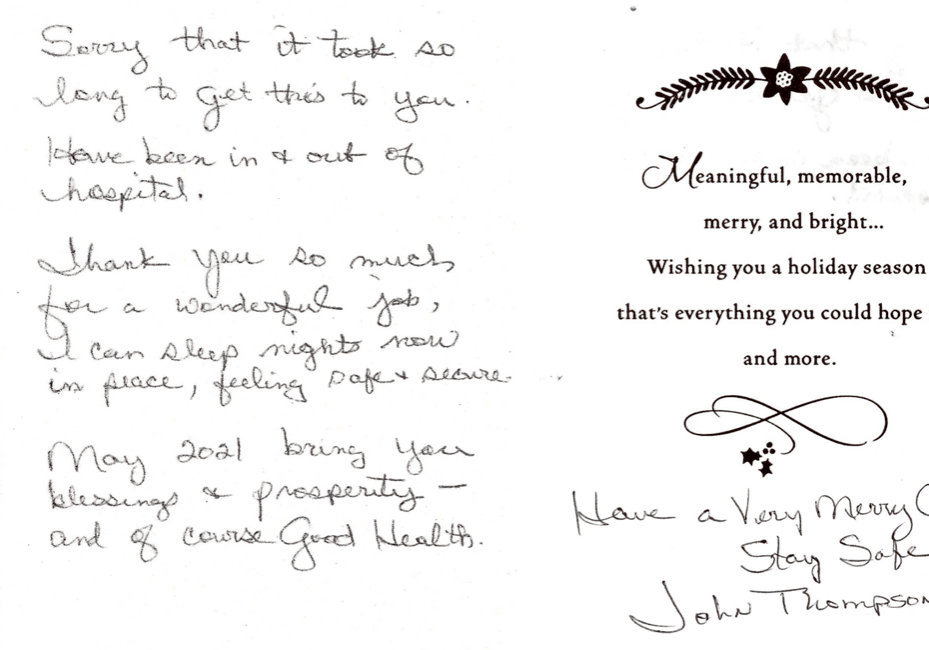 Sorry that it took so
long to get this to you.
Have been in & out of
hospital.
Thank you so much
for a wonderful job,
I can sleep nights now
in peace, feeling safe & secure.
May 2021 bring you
blessings & prosperity —
and of course Good Health.
Meaningful, memorable,
merry, and bright...
Wishing you a holiday season
that's everything you could hope
and more.
Have a Very Merry
Stay Safe
John Thompson